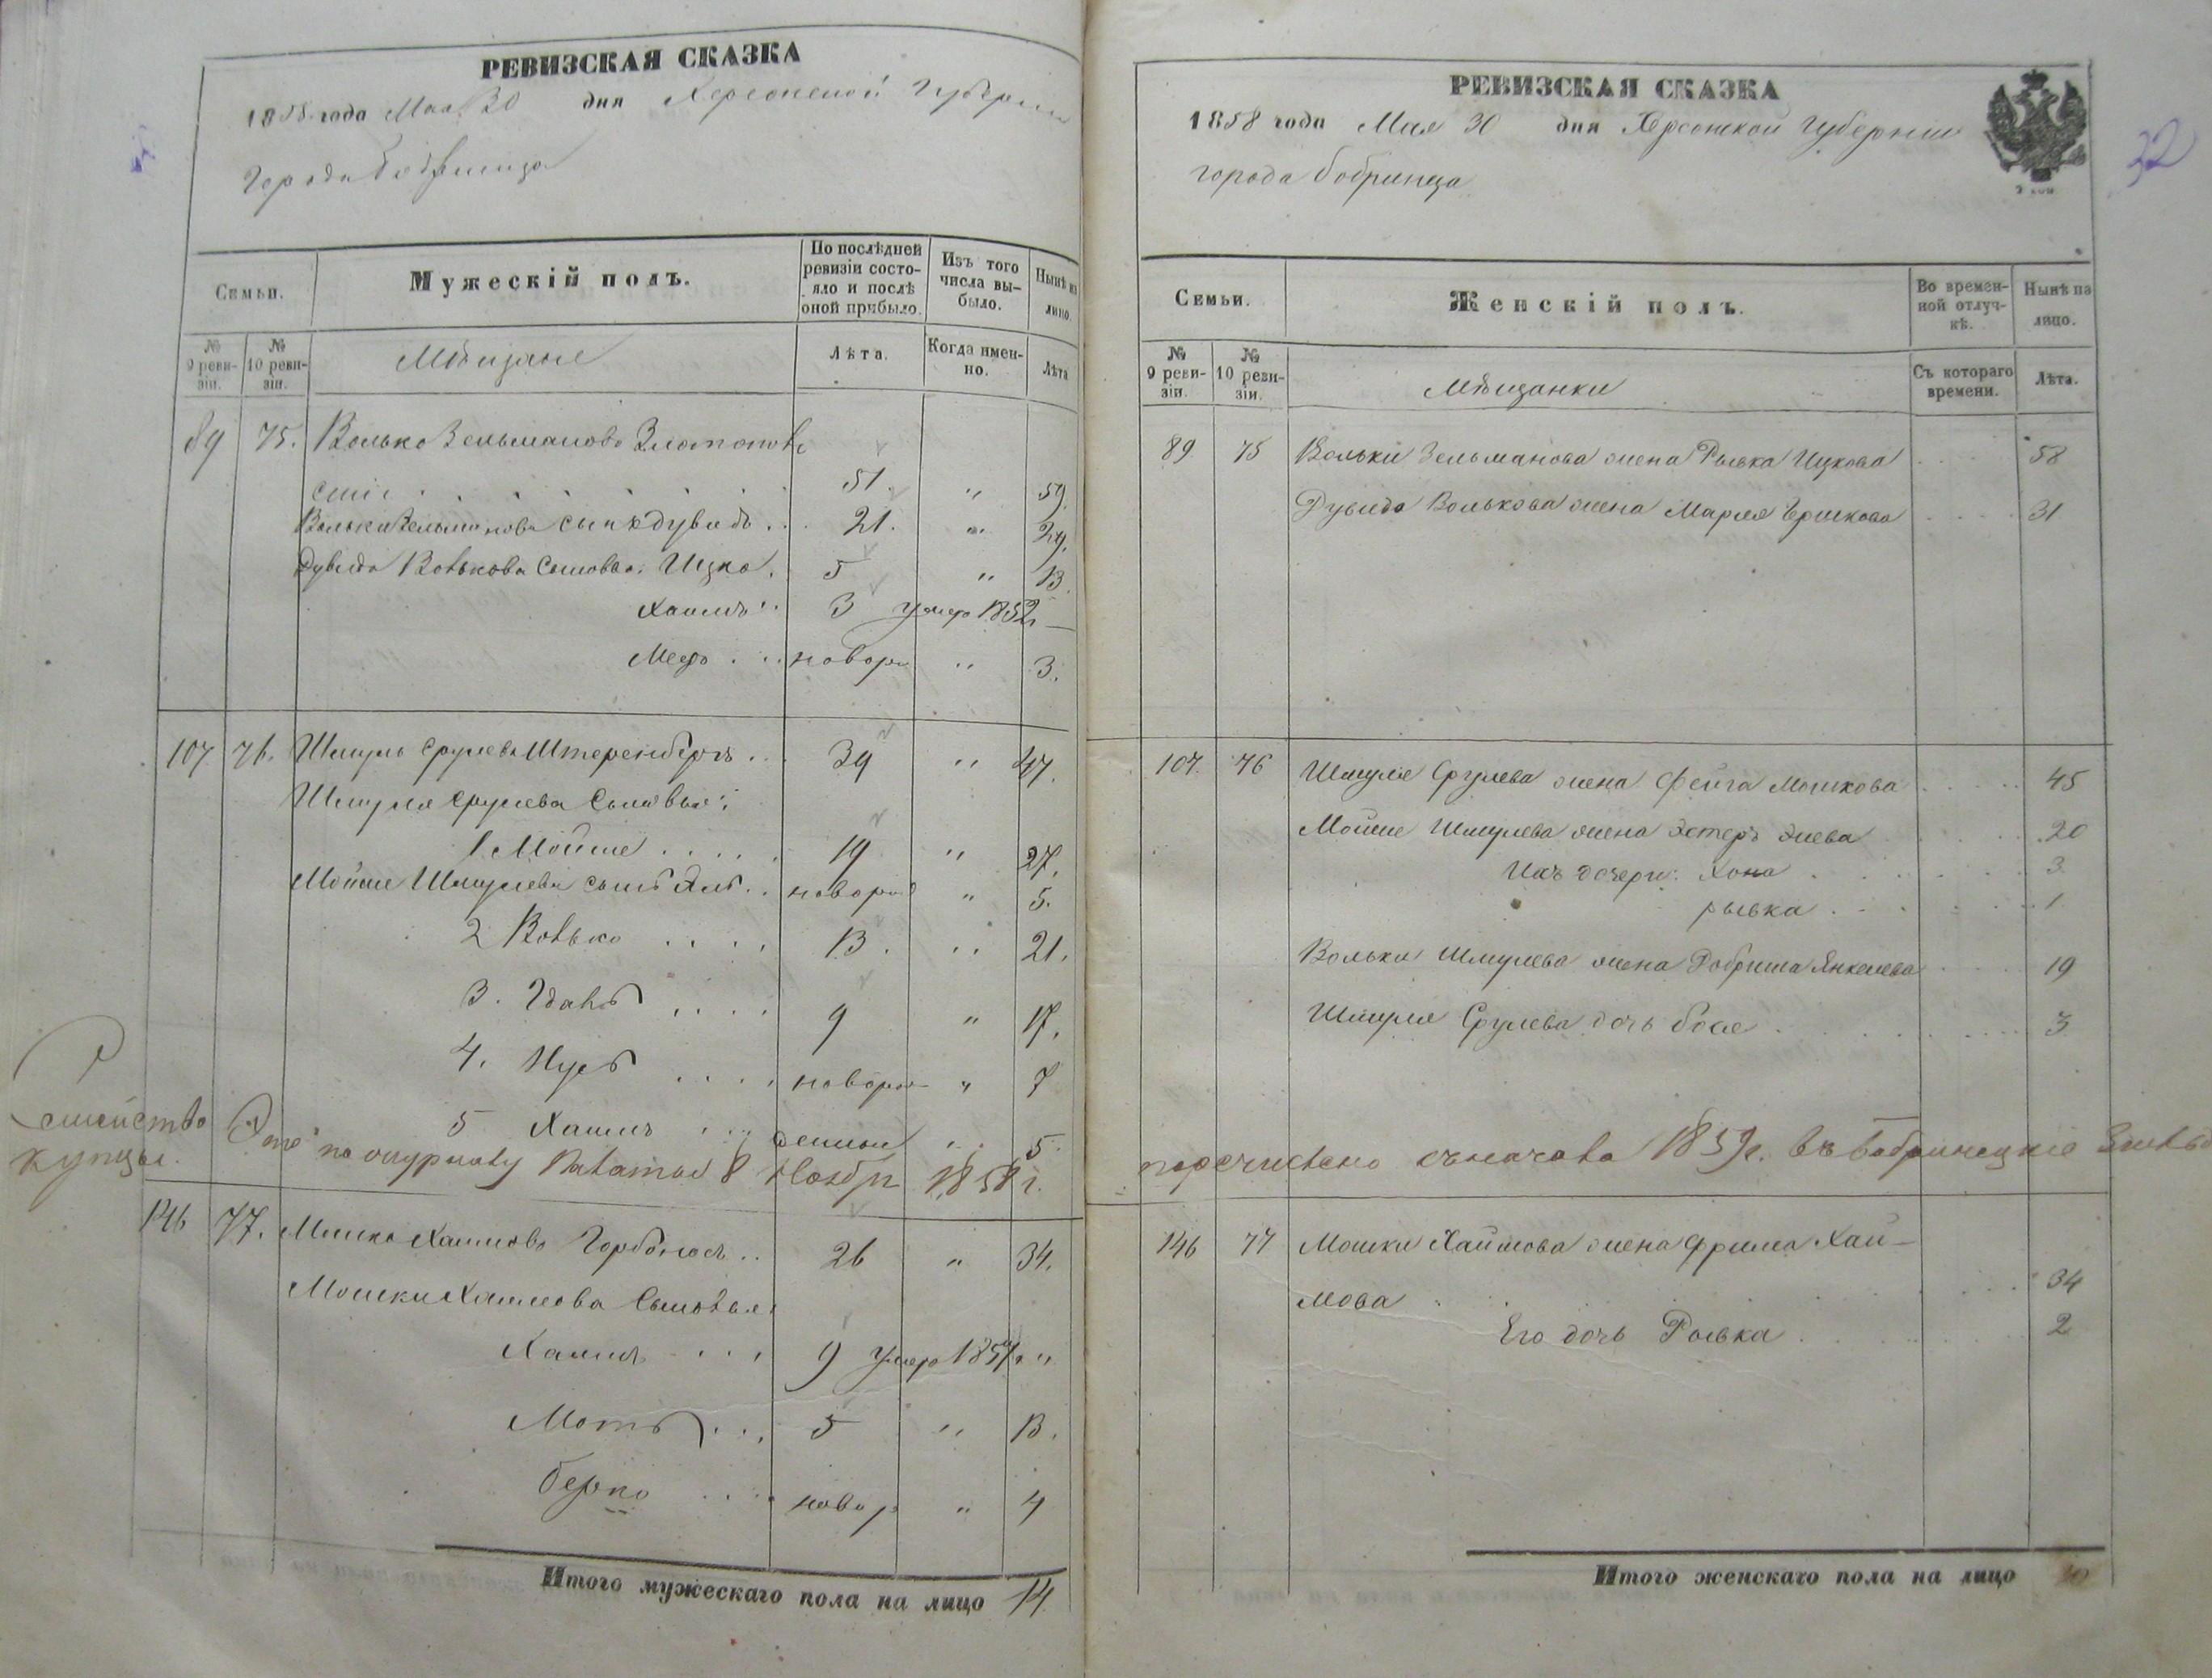 РЕВИЗСКАЯ СКАЗКА
1858 года Мая 30 дня Херсонской Губернии
Города Бобринца
Семьи.
Мужескій полъ.
По послѣдней ревизіи состояло и послѣ оной прибыло.
Изъ того числа выбыло.
Нынѣ на лицо.
№ 9 ревизіи.
№ 10 ревизіи.
Мѣщане
Лѣта.
Когда именно.
Лѣта
89 75. Волько Зельмановъ
51. " 59.
Волька Зельманова сынъ Дувидъ 21. " 29.
Дувида Волькова сыновья: Ицко. 5 " 13.
Хаимъ 3 умеръ 1852 —
Мееръ новорж " 3.
107 76. Шмуль Срулевъ Штеренбергъ 39 " 47.
Шмуля Срулева Сыновья:
1 Мойше 19 " 27.
Мойше Шмулева сынъ новорж " 5.
2 Волько 13. " 21.
3. 9 " 17.
4. новорж " 7
5 Хаимъ " 5.
Семейство Это по журналу Палаты 8 Ноября 1858 г.
купцы.
146 77. Мошко Хаимовъ 26 " 34.
Мошки Хаимова Сыновья:
Хаимъ 9 умеръ "
5 " 13.
Берко новор " 4
Итого мужескаго пола на лицо 14.
РЕВИЗСКАЯ СКАЗКА
1858 года Мая 30 дня Херсонской Губерніи
города Бобринца
32
Семьи.
Женскій полъ.
Во временной отлучкѣ.
Нынѣ на лицо.
№ 9 ревизіи.
№ 10 ревизіи.
Мѣщанки
Съ котораго времени.
Лѣта.
89 75 Вольки Зельманова жена Рывка Ицкова 58
Дувида Волькова жена Марья Ершкова 31
107. 76 Шмуля Срулева жена Фейга Мошкова 45
Мойше Шмулева жена Эстеръ 20
Ихъ дочери: Хона 3
рывка 1
Вольки Шмулева жена Добриша Янкелева 19
Шмуля Срулева дочь бося 3
перечислено съ начала 1859 г. въ Бобринецкіе
146 77 Мошки Хаимова жена Фрима Хай-
мова 34
Его дочь Рывка 2
Итого женскаго пола на лицо 10